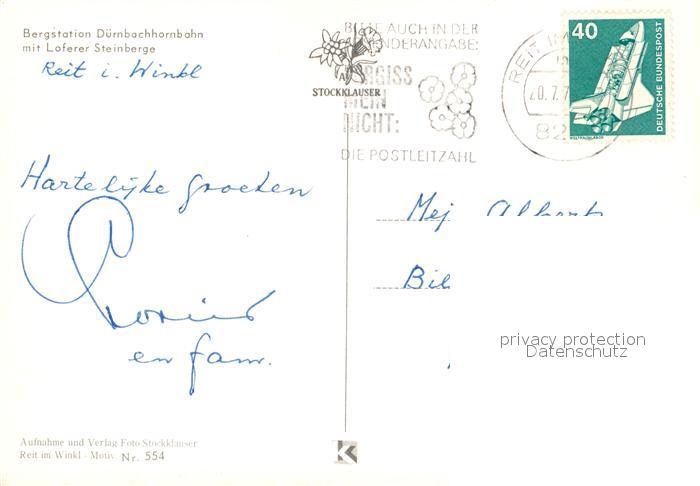 Bergstation Dürnbachhornbahn
mit Loferer Steinberge
Reit i. Winkl
BITTE AUCH IN DER
STOCKKLAUSER
MEIN
NICHT:
DIE POSTLEITZAHL
REIT IM
40
DEUTSCHE BUNDESPOST
Hartelijke groeten
en fam.
Mej. Albert
Bil
privacy protection
Datenschutz
Aufnahme und Verlag Foto Stockklauser
Reit im Winkl - Motiv Nr. 554